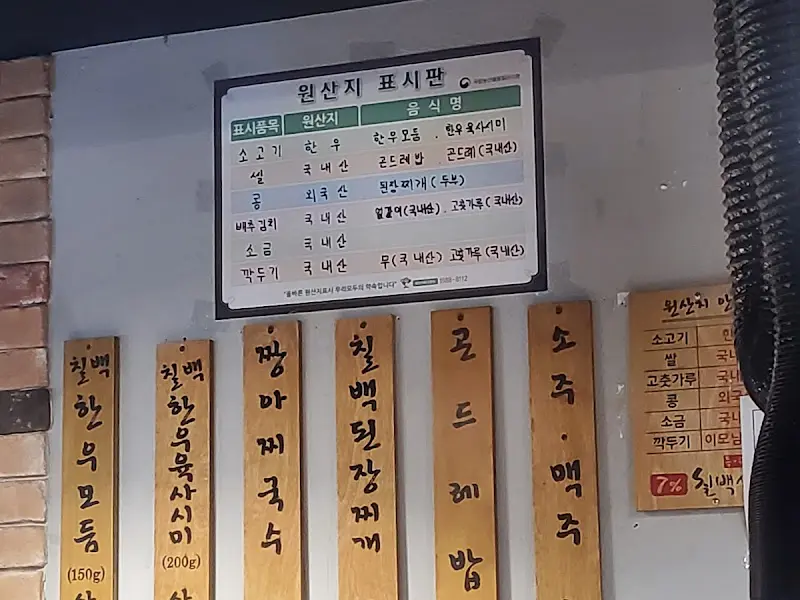 원산지 표시판
표시품목 원산지 음식명
소고기 한우 한우모둠 . 한우육사시미
쌀 국내산 곤드레밥 . 곤드레(국내산)
콩 외국산 된장찌개(두부)
배추김치 국내산 얼갈이(국내산) . 고춧가루(국내산)
소금 국내산
깍두기 국내산 무(국내산) 고춧가루(국내산)
"올바른 원산지표시 우리모두의 약속입니다"
칠백
한우모둠
(150g)
칠백
한우육사시미
(200g)
짱아찌국수
칠백된장찌개
곤드레밥
소주·맥주
원산지 안
소고기 한
쌀 국내
고춧가루 국내
콩 외국
소금 국내
깍두기 이모님
7% 칠백